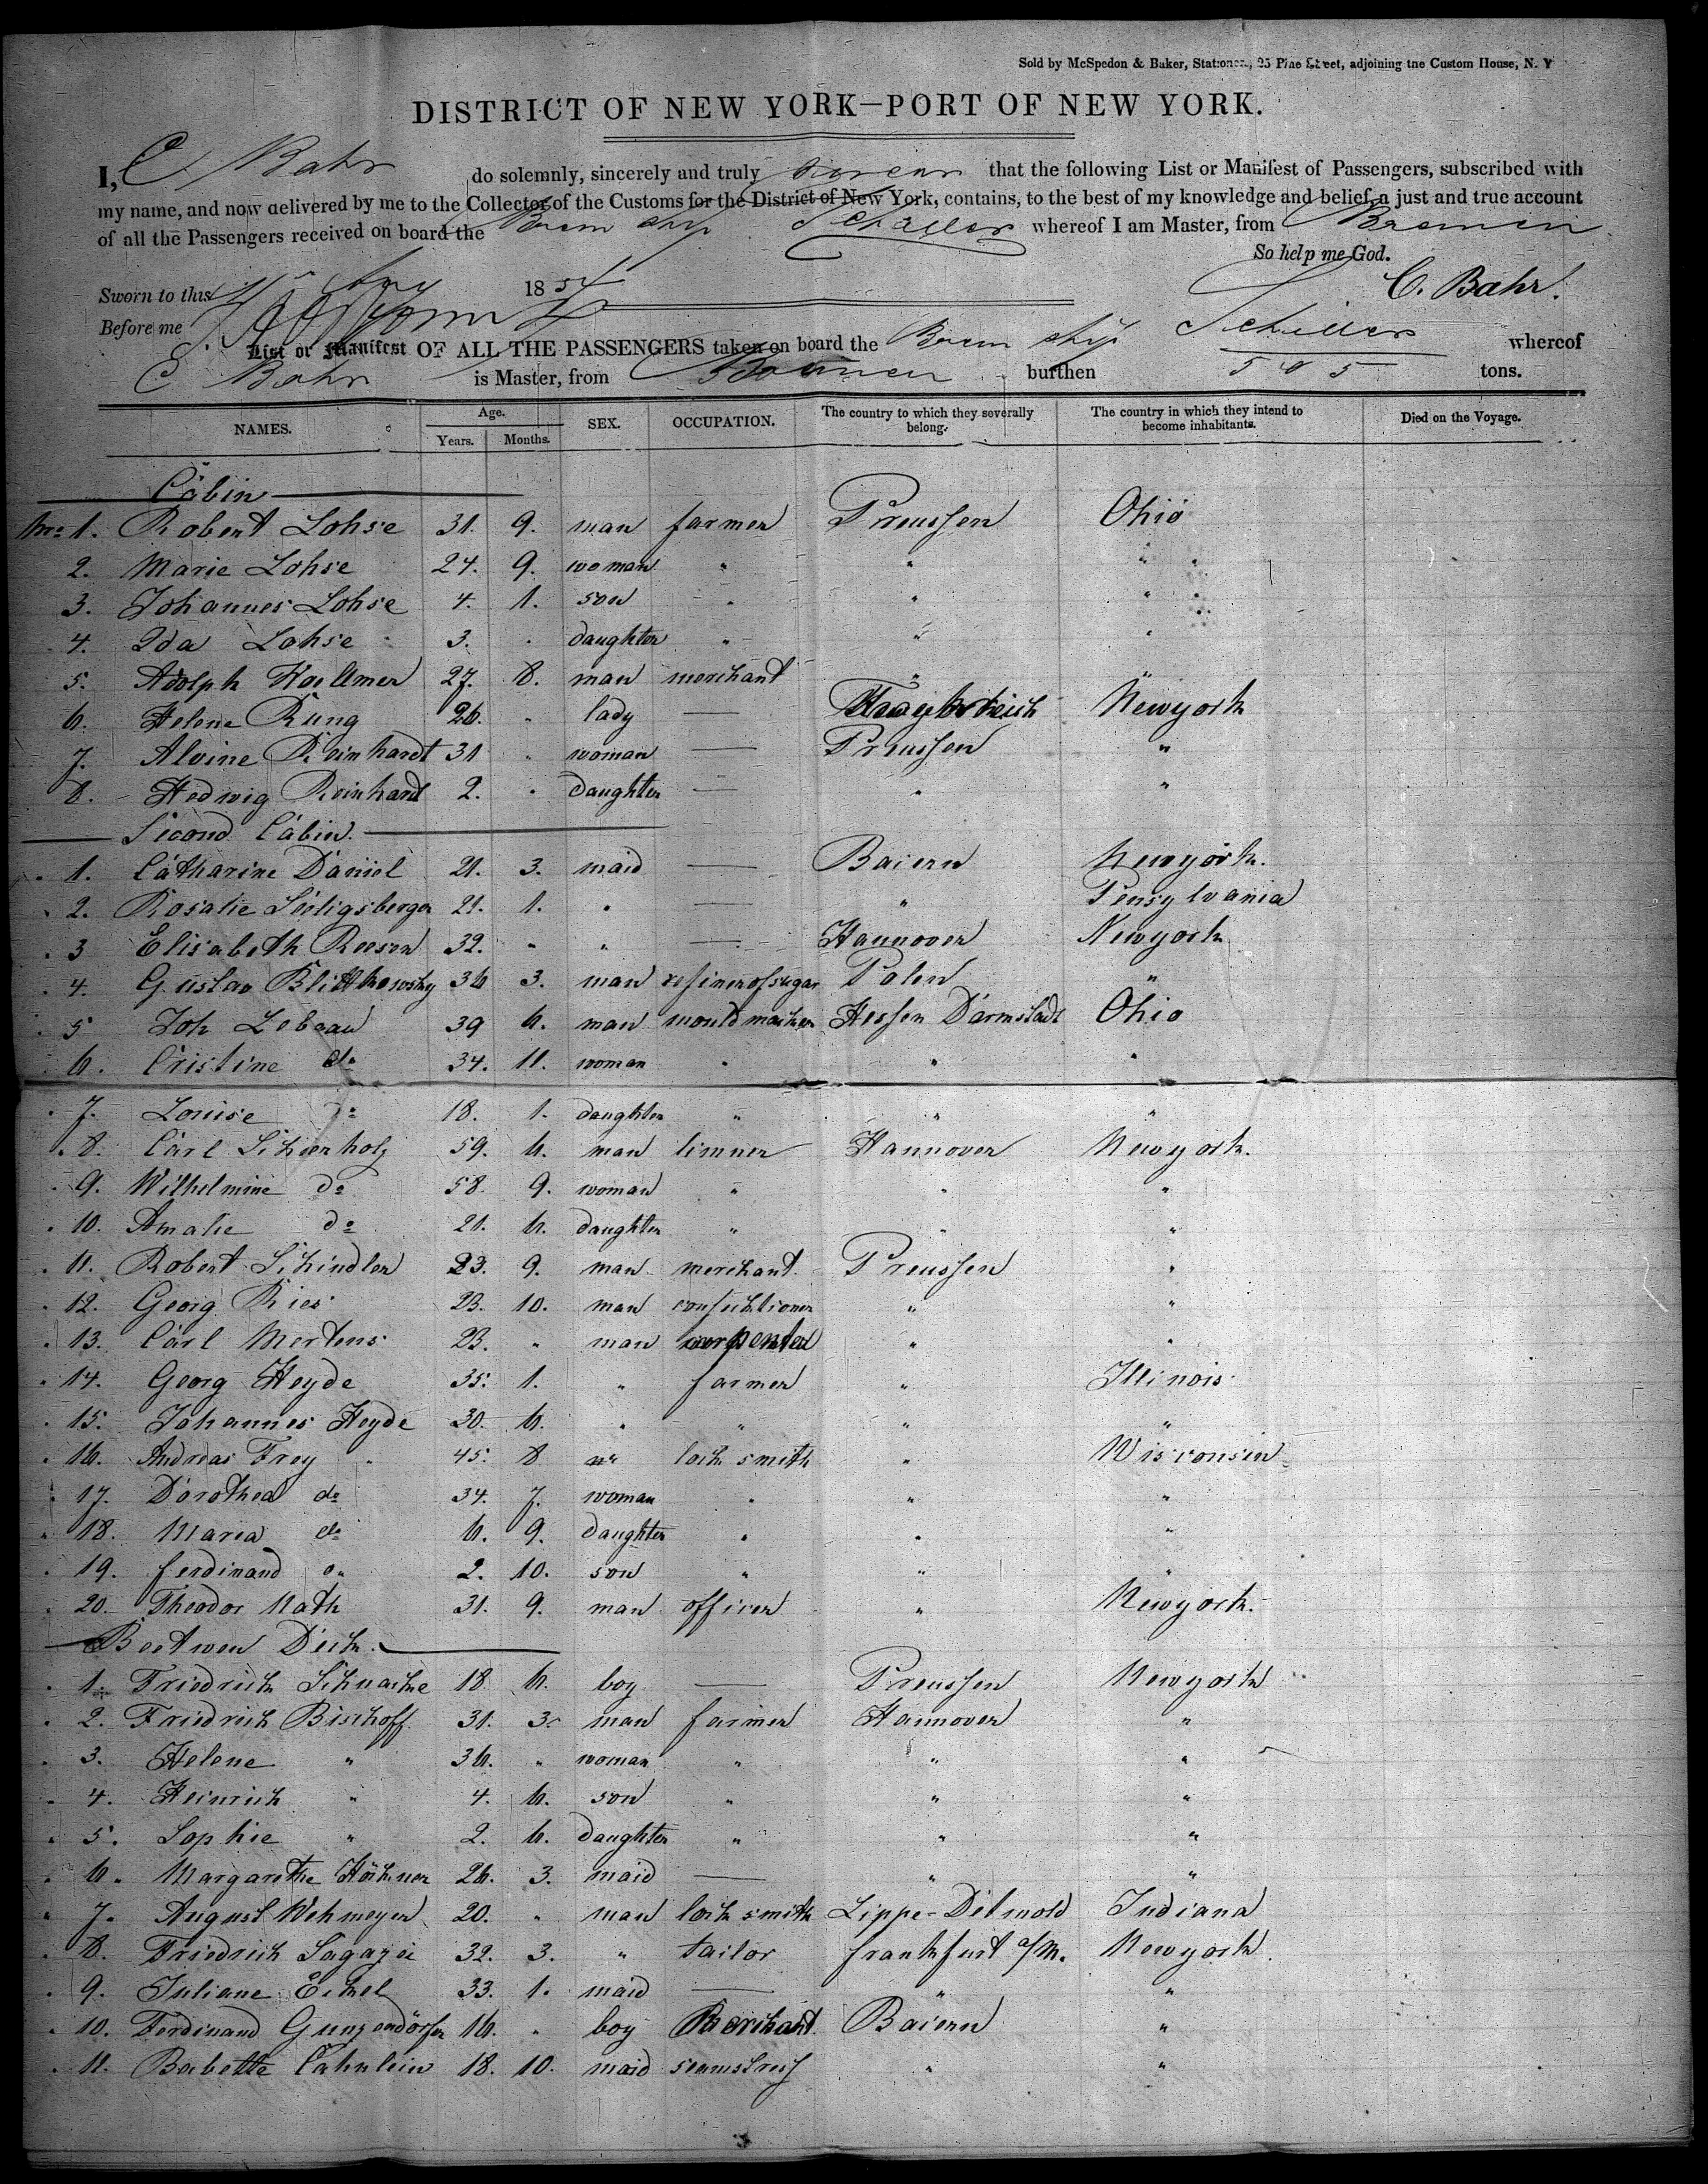 Sold by McSpedon & Baker, Stationers, 25 Pine Street, adjoining the Custom House, N. Y
DISTRICT OF NEW YORK—PORT OF NEW YORK.
I, C. Bahr do solemnly, sincerely and truly swear that the following List or Manifest of Passengers, subscribed with
my name, and now delivered by me to the Collector of the Customs for the District of New York, contains, to the best of my knowledge and belief, a just and true account
of all the Passengers received on board the Brem ship Schiller whereof I am Master, from Bremen
So help me God.
Sworn to this 1854 C. Bahr.
Before me
List or Manifest OF ALL THE PASSENGERS taken on board the Brem ship Schiller whereof
C Bahr is Master, from Bremen burthen 505 tons.
NAMES. Age. Years. Months. SEX. OCCUPATION. The country to which they severally belong. The country in which they intend to become inhabitants. Died on the Voyage.
Cabin
No. 1. Robert Lohse 31. 9. man farmer Preussen Ohio
2. Marie Lohse 24. 9. woman " " "
3. Johannes Lohse 4. 1. son " " "
4. Ida Lohse 3. " daughter " " "
5. Adolph Koellmer 27. 8. man merchant " "
6. Helene Rung 26. " lady — Newyork
7. Alvine Reinhardt 31 " woman — Preussen "
8. Hedwig Reinhardt 2. " daughter — " "
Second Cabin.
1. Catharine Daniel 21. 3. maid — Baiern Newyork.
2. Rosalie Seeligsberger 21. 1. " — " Pensylvania
3 Elisabeth Reesen 32. " " — Hannover Newyork
4. Gustav Blitthowsky 36 3. man refiner of sugar Polen "
5 Joh Lebaau 39 6. man mouldmacher Hessen Darmstadt Ohio
6. Cristine do 34. 11. woman " " "
7. Louise do 18. 1. daughter " " "
8. Carl Schierholz 59. 6. man limner Hannover Newyork.
9. Wilhelmine do 58. 9. woman " " "
10. Amalie do 21. 6. daughter " " "
11. Robert Schindler 23. 9. man merchant Preussen "
12. Georg Ries 23. 10. man confecktioner " "
13. Carl Mertens 23. " man carpenter " "
14. Georg Heyde 35. 1. " farmer " Illinois
15. Johannes Heyde 30. 6. " " " "
16. Andreas Frey 45. 8 " lock smith " Wisconsin
17. Dorothea do 34. 7. woman " " "
18. Maria do 6. 9. daughter " " "
19. ferdinand do 2. 10. son " " "
20. Theodor Nath 31. 9. man officer " Newyork.
Beetwen Deck.
1. Friedrich Schnacke 18. 6. boy — Preussen Newyork
2. Friedrich Bischoff 31. 3. man farmer Hannover "
3. Helene " 36. " woman " " "
4. Heinrich " 4. 6. son " " "
5. Sophie " 2. 6. daughter " " "
6. Margarethe Höckner 26. 3. maid — " "
7. August Wehmeyer 20. " man lock smith Lippe-Detmold Indiana
8. Friedrich Sagazei 32. 3. " tailor frankfurt a/M. Newyork
9. Juliane Eckel 33. 1. maid — " "
10. Ferdinand Gunzendörfer 16. " boy Merchant Baiern "
11. Babette Cahnlein 18. 10. maid seamstress " "